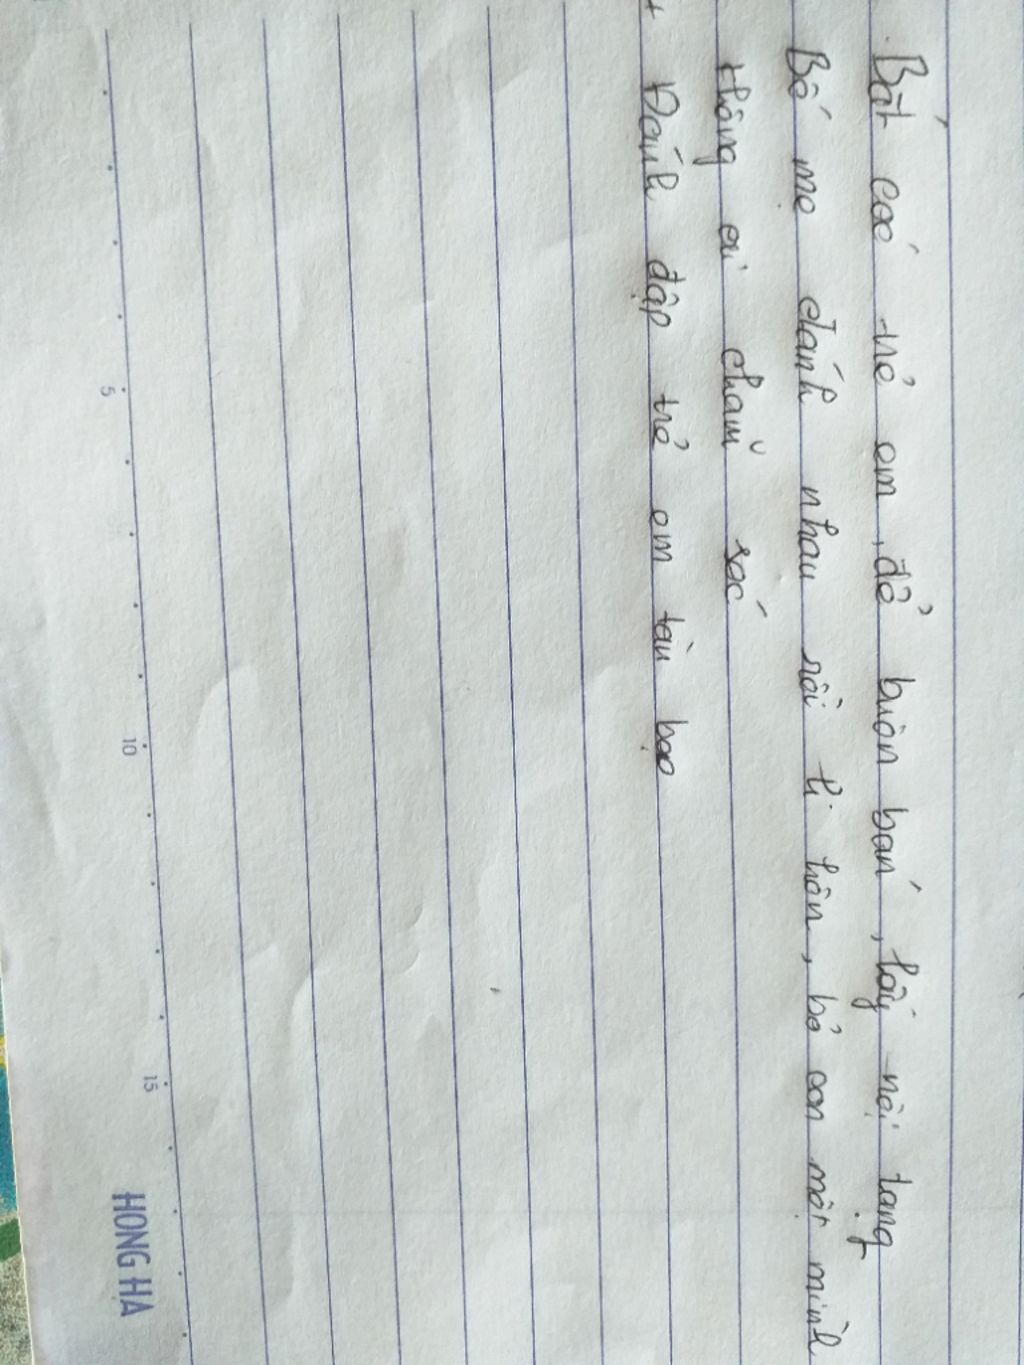 Bắt cóc trẻ em, để buôn bán, lấy nội tạng
Bố mẹ đánh nhau rồi li hôn, bỏ con một mình
không ai chăm sóc
+ Đánh đập trẻ em tàn bạo
5
10
15
HONG HA